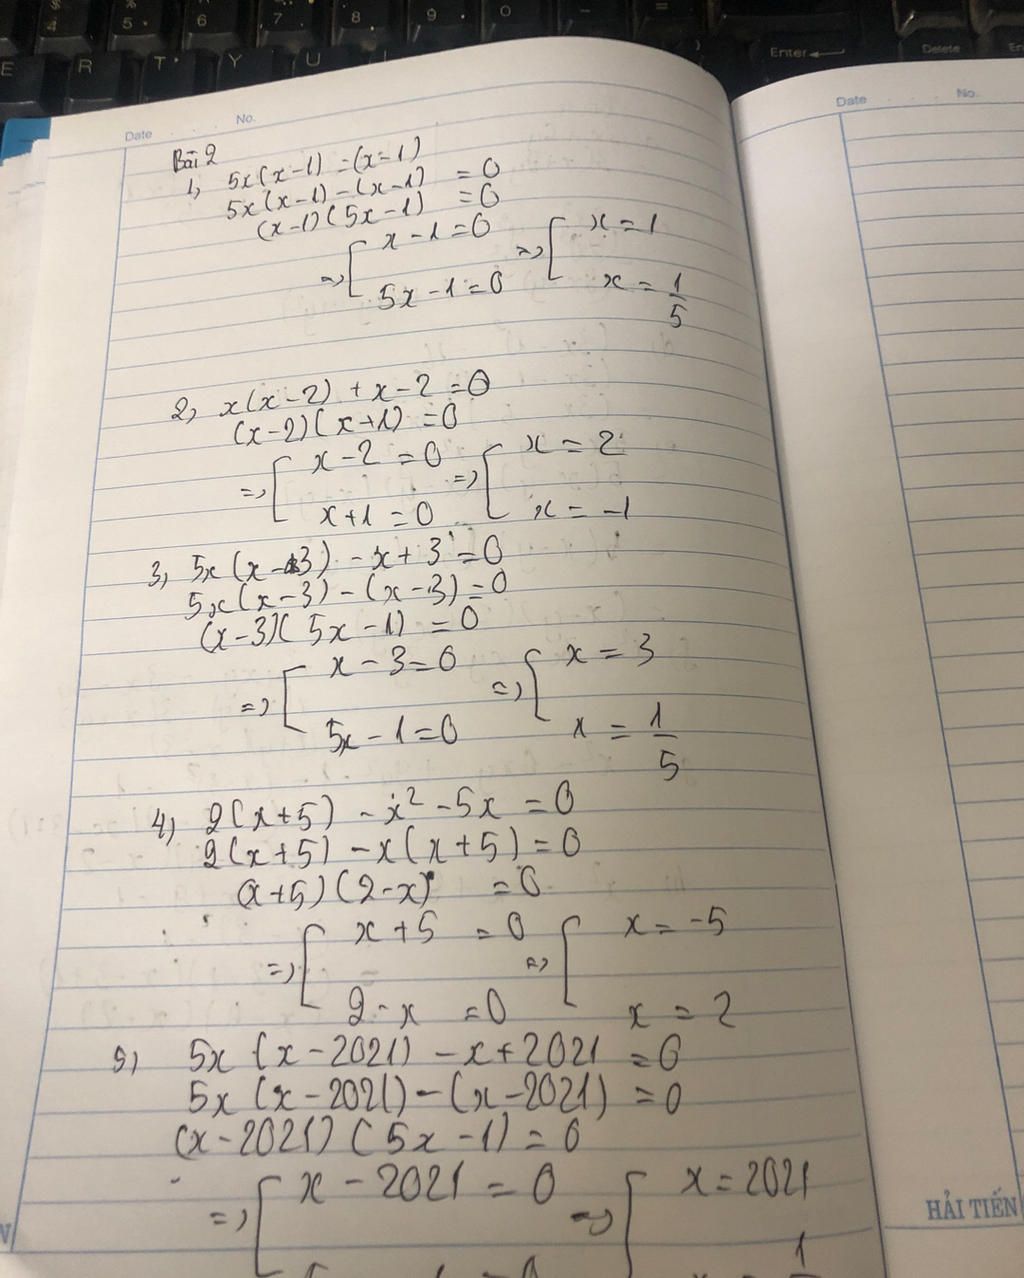 $ % - =
4 5 6 7 8 9 0
E R T Y U
Enter Delete En
Date No.
Date No.
Bài 2
1, 5x(x-1) = (x-1)
5x(x-1) - (x-1) = 0
(x-1)(5x-1) = 0
=> [ x-1=0 => [ x=1
5x-1=0 x = 1/5
2, x(x-2) + x-2 = 0
(x-2)(x+1) = 0
=> [ x-2 = 0 => [ x = 2
x+1 = 0 x = -1
3, 5x(x-3) - x+3 = 0
5x(x-3) - (x-3) = 0
(x-3)(5x-1) = 0
=> [ x-3=0 => [ x = 3
5x-1=0 x = 1/5
4, 2(x+5) - x² - 5x = 0
2(x+5) - x(x+5) = 0
(x+5)(2-x) = 0
=> [ x+5 = 0 => [ x = -5
2-x = 0 x = 2
5) 5x(x-2021) - x+2021 = 0
5x(x-2021) - (x-2021) = 0
(x-2021)(5x-1) = 0
=> [ x-2021 = 0 => [ x = 2021
HẢI TIẾN